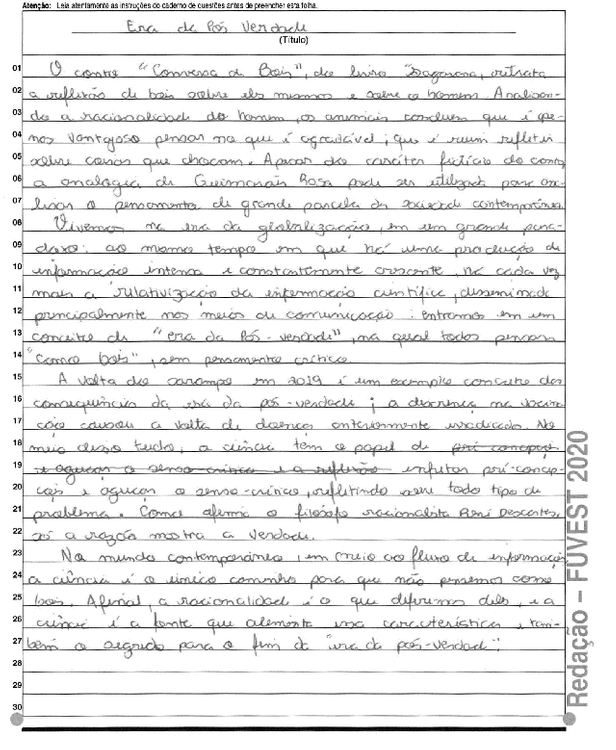 Atenção: Leia atentamente as instruções do caderno de questões antes de preencher esta folha.
Era da Pós Verdade
(Título)
01 O conto "Conversa de Bois", do livro "Sagarana, retrata
02 a reflexão de bois sobre eles mesmos e sobre o homem. Analisan-
03 do a racionalidade do homem, os animais concluem que é ape-
04 nas vantajoso pensar no que é agradável; que é ruim refletir
05 sobre coisas que chocam. Apesar do caráter fictício do conto,
06 a analogia de Guimarães Rosa pode ser utilizada para ana-
07 lisar o pensamento de grande parcela da sociedade contemporânea.
08 Vivemos na era da globalização, em um grande para-
09 doxo: ao mesmo tempo em que há uma produção de
10 informação intensa e constantemente crescente, há cada vez
11 mais a relativização da informação científica, disseminada
12 principalmente nos meios de comunicação: entramos em um
13 conceito de "era da Pós-verdade", na qual todos pensam
14 "como bois", sem pensamento crítico.
15 A volta do sarampo em 2019 é um exemplo concreto das
16 consequências da era da pós-verdade; a descrença na vacina-
17 ção causou a volta de doenças anteriormente erradicadas. No
18 meio disso tudo, a ciência tem o papel de pré concepçõ
19 e aguçar o senso crítico e a reflexão enfrentar pré-concep-
20 ções e aguçar o senso-crítico, refletindo sobre todo tipo de
21 problema. Como afirma o filósofo racionalista René Descartes,
22 só a razão mostra a verdade.
23 No mundo contemporâneo, em meio ao fluxo de informação
24 a ciência é o único caminho para que não pensemos como
25 bois. Afinal, a racionalidade é o que diferimos deles, e a
26 ciência é a fonte que alimenta essa característica e tam-
27 bém o segredo para o fim da "era da pós-verdade".
28
29
30
Redação – FUVEST 2020